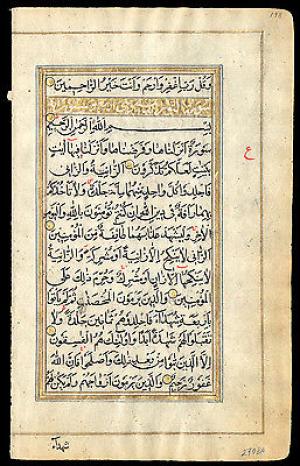 وَقُلْ رَبِّ اغْفِرْ وَارْحَمْ وَأَنْتَ خَيْرُ الرَّاحِمِينَ
بِسْمِ اللهِ الرَّحْمٰنِ الرَّحِيمِ
سُورَةٌ أَنْزَلْنَاهَا وَفَرَضْنَاهَا وَأَنْزَلْنَا فِيهَا آيَاتٍ
بَيِّنَاتٍ لَعَلَّكُمْ تَذَكَّرُونَ الزَّانِيَةُ وَالزَّانِي
ع
فَاجْلِدُوا كُلَّ وَاحِدٍ مِنْهُمَا مِائَةَ جَلْدَةٍ وَلَا تَأْخُذْكُمْ
بِهِمَا رَأْفَةٌ فِي دِينِ اللهِ إِنْ كُنْتُمْ تُؤْمِنُونَ بِاللهِ وَالْيَوْمِ
الْآخِرِ وَلْيَشْهَدْ عَذَابَهُمَا طَائِفَةٌ مِنَ الْمُؤْمِنِينَ
الزَّانِي لَا يَنْكِحُ إِلَّا زَانِيَةً أَوْ مُشْرِكَةً وَالزَّانِيَةُ
لَا يَنْكِحُهَا إِلَّا زَانٍ أَوْ مُشْرِكٌ وَحُرِّمَ ذَلِكَ عَلَى
الْمُؤْمِنِينَ وَالَّذِينَ يَرْمُونَ الْمُحْصَنَاتِ ثُمَّ لَمْ يَأْتُوا
بِأَرْبَعَةِ شُهَدَاءَ فَاجْلِدُوهُمْ ثَمَانِينَ جَلْدَةً وَلَا
تَقْبَلُوا لَهُمْ شَهَادَةً أَبَدًا وَأُولَئِكَ هُمُ الْفَاسِقُونَ
إِلَّا الَّذِينَ تَابُوا مِنْ بَعْدِ ذَلِكَ وَأَصْلَحُوا فَإِنَّ اللهَ
غَفُورٌ رَحِيمٌ وَالَّذِينَ يَرْمُونَ أَزْوَاجَهُمْ وَلَمْ يَكُنْ لَهُمْ
شهداء